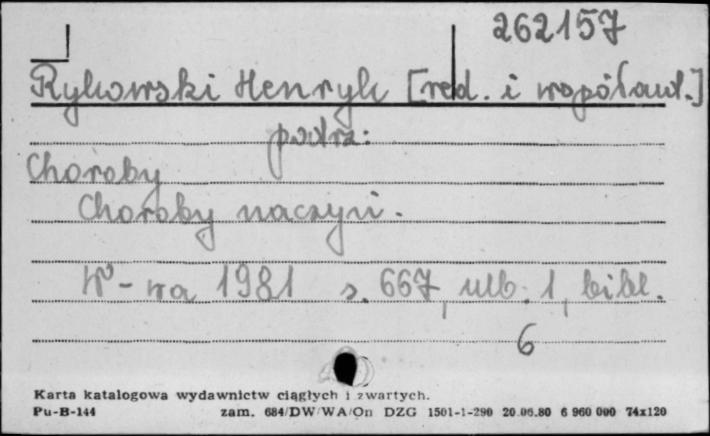 262157
Rykowski Henryk [red. i współaut.]
podrz:
Choroby
Choroby naczyń.
W-wa 1981 s. 667, nlb. 1, bibl.
6
Karta katalogowa wydawnictw ciągłych i zwartych.
Pu-B-144 zam. 684/DW/WA/On DZG 1501-1-290 20.06.80 6 960 000 74x120